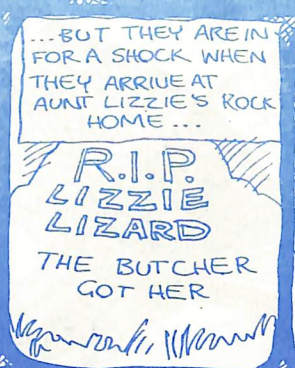 ...BUT THEY ARE IN
FOR A SHOCK WHEN
THEY ARRIVE AT
AUNT LIZZIE'S ROCK
HOME...
R.I.P.
LIZZIE
LIZARD
THE BUTCHER
GOT HER